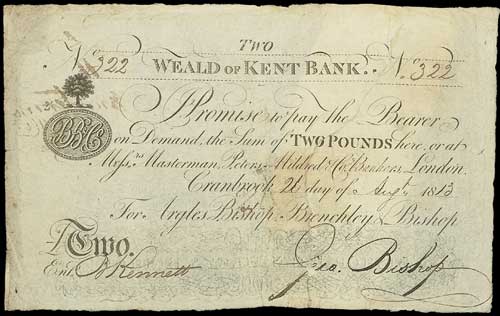 TWO
No. 322 WEALD OF KENT BANK. No. 322
I Promise to pay the Bearer
on Demand, the Sum of TWO POUNDS here, or at
Messrs. Masterman, Peters, Mildred & Co. Bankers, London.
Cranbrook 26 day of Augt. 1813
For Argles, Bishop, Brenchley & Bishop
£Two.
Entd. B Kennett Geo. Bishop